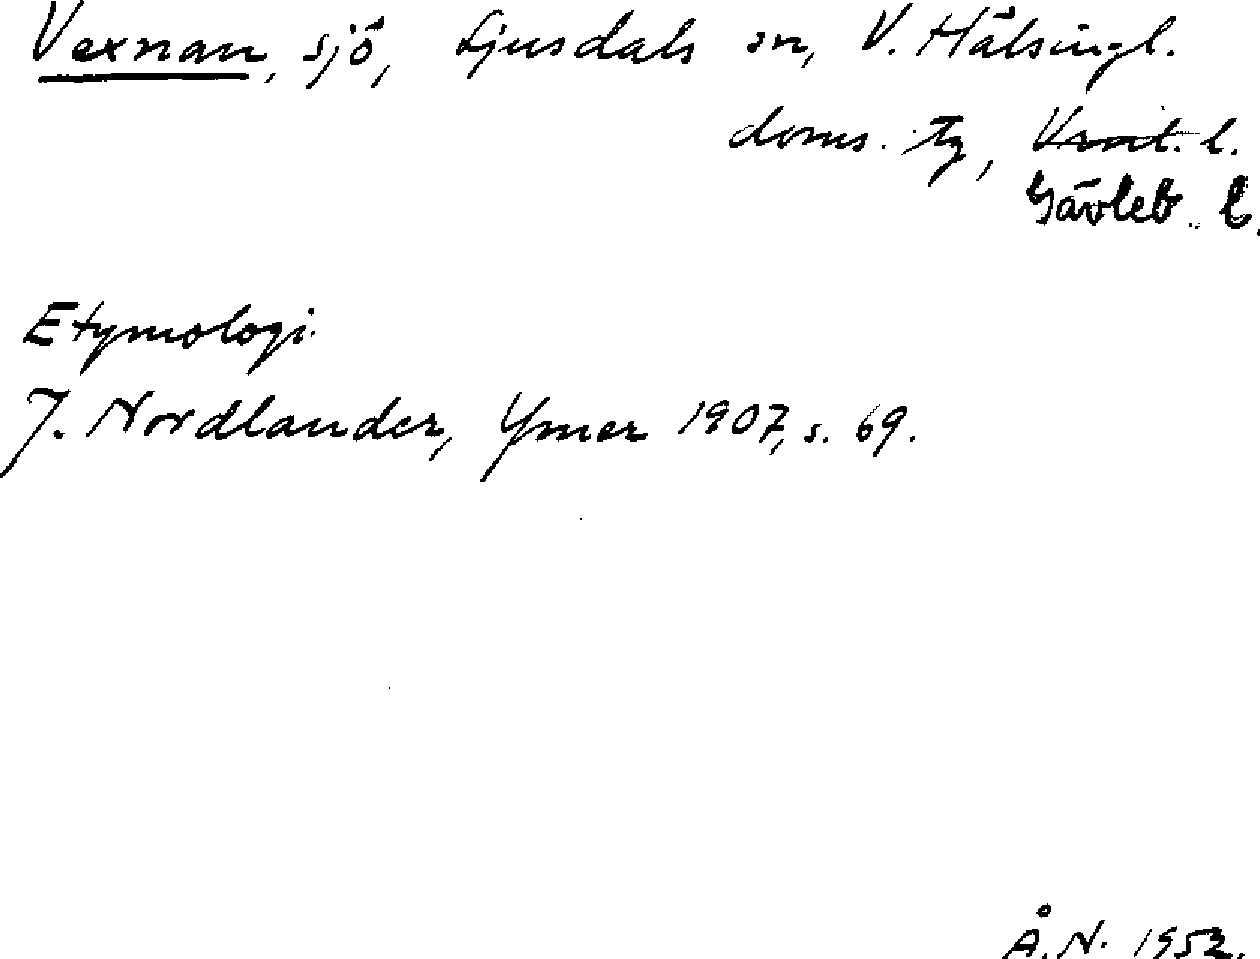 Vexnan, sjö, Ljusdals sn, V. Hälsingl.
doms. tg, l.
Gävleb. l.
Etymologi.
J. Nordlander, Ymer 1907, s. 69.
Å.N. 1952.